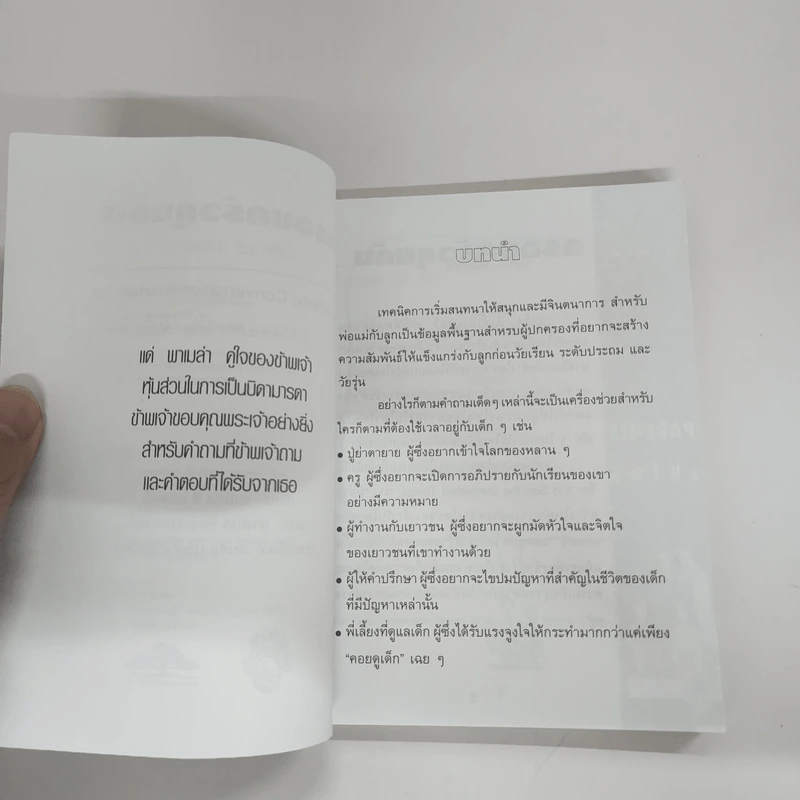 แด่ พาเมล่า คู่ใจของข้าพเจ้า
หุ้นส่วนในการเป็นบิดามารดา
ข้าพเจ้าขอบคุณพระเจ้าอย่างยิ่ง
สำหรับคำถามที่ข้าพเจ้าถาม
และคำตอบที่ได้รับจากเธอ
บทนำ
เทคนิคการเริ่มสนทนาให้สนุกและมีจินตนาการ สำหรับ
พ่อแม่กับลูกเป็นข้อมูลพื้นฐานสำหรบผู้ปกครองที่อยากจะสร้าง
ความสัมพันธ์ให้แข็งแกร่งกับลูกก่อนวัยเรียน ระดับประถม และ
วัยรุ่น
อย่างไรก็ตามคำถามเด็ดๆ เหล่านี้จะเป็นเครื่องช่วยสำหรับ
ใครก็ตามที่ต้องใช้เวลาอยู่กับเด็ก ๆ เช่น
● ปู่ย่าตายาย ผู้ซึ่งอยากเข้าใจโลกของหลาน ๆ
● ครู ผู้ซึ่งอยากจะเปิดการอภิปรายกับนักเรียนของเขา
อย่างมีความหมาย
● ผู้ทำงานกับเยาวชน ผู้ซึ่งอยากจะผูกมัดหัวใจและจิตใจ
ของเยาวชนที่เขาทำงานด้วย
● ผู้ให้คำปรึกษา ผู้ซึ่งอยากจะไขปมปัญหาที่สำคัญในชีวิตของเด็ก
ที่มีปัญหาเหล่านั้น
● พี่เลี้ยงที่ดูแลเด็ก ผู้ซึ่งได้รับแรงจูงใจให้กระทำมากกว่าแค่เพียง
“คอยดูเด็ก” เฉย ๆ